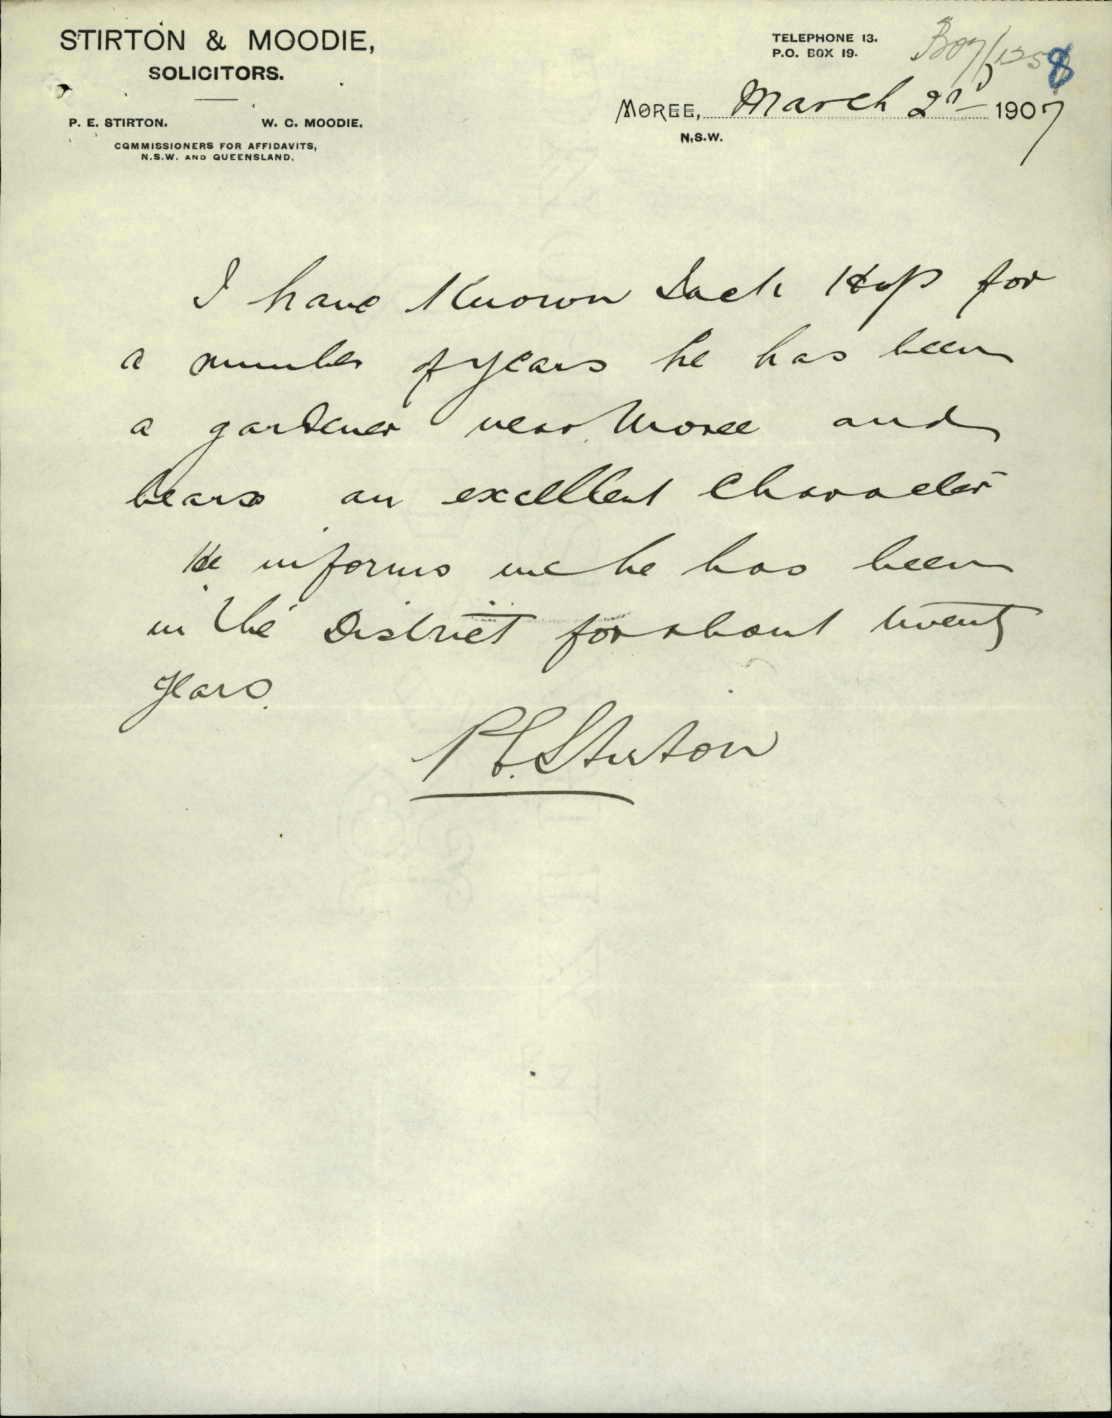 STIRTON & MOODIE,
SOLICITORS.
P. E. STIRTON. W. C. MOODIE.
COMMISSIONERS FOR AFFIDAVITS,
N.S.W. AND QUEENSLAND.
TELEPHONE 13.
P.O. BOX 19.
8
MOREE, March 2nd 1907
N.S.W.
I have Known Jack Hop for
a number of years he has been
a gardener near Moree and
bears an excellent Character
He informs me he has been
in the District for about twenty
years.
P E. Stirton